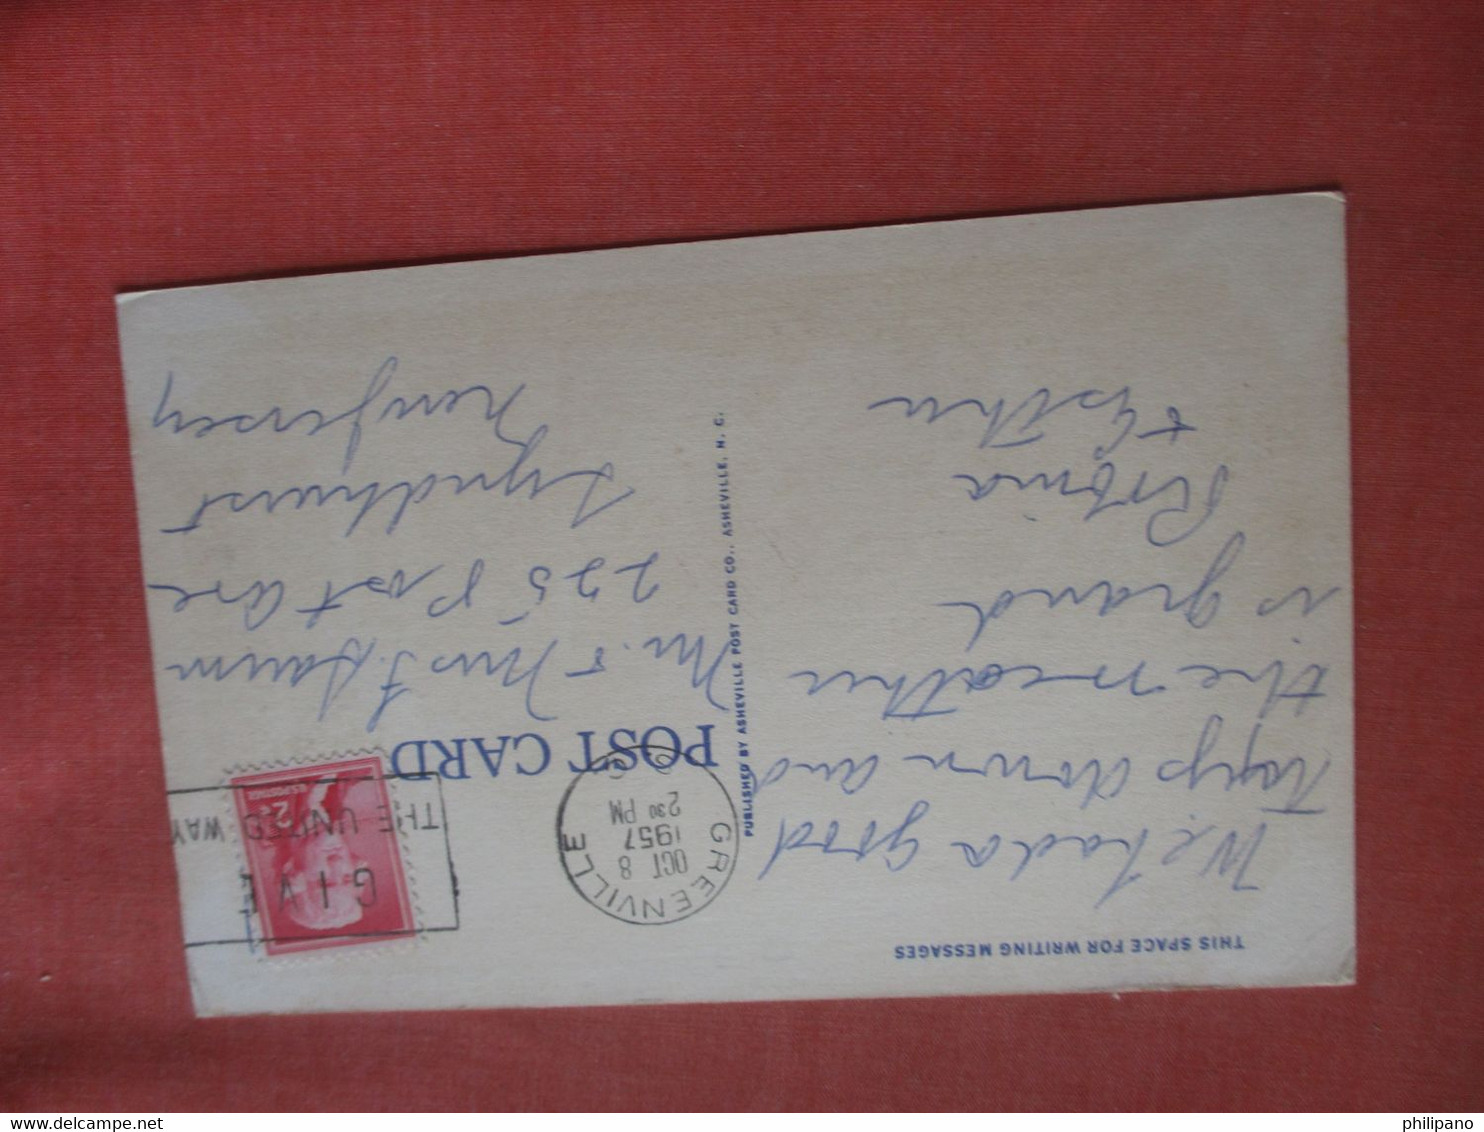 THIS SPACE FOR WRITING MESSAGES
We had a good
Tryp down and
the weather
is grand
& Esther
PUBLISHED BY ASHEVILLE POST CARD CO., ASHEVILLE, N. C.
POST CARD
GREENVILLE
OCT 8
1957
2 30 PM
S. C.
GIVE
THE UNITED WAY
2¢
U.S. POSTAGE
Mr. & Mrs J.
225 Post Ave
Lyndhurst
New Jersey
philipano